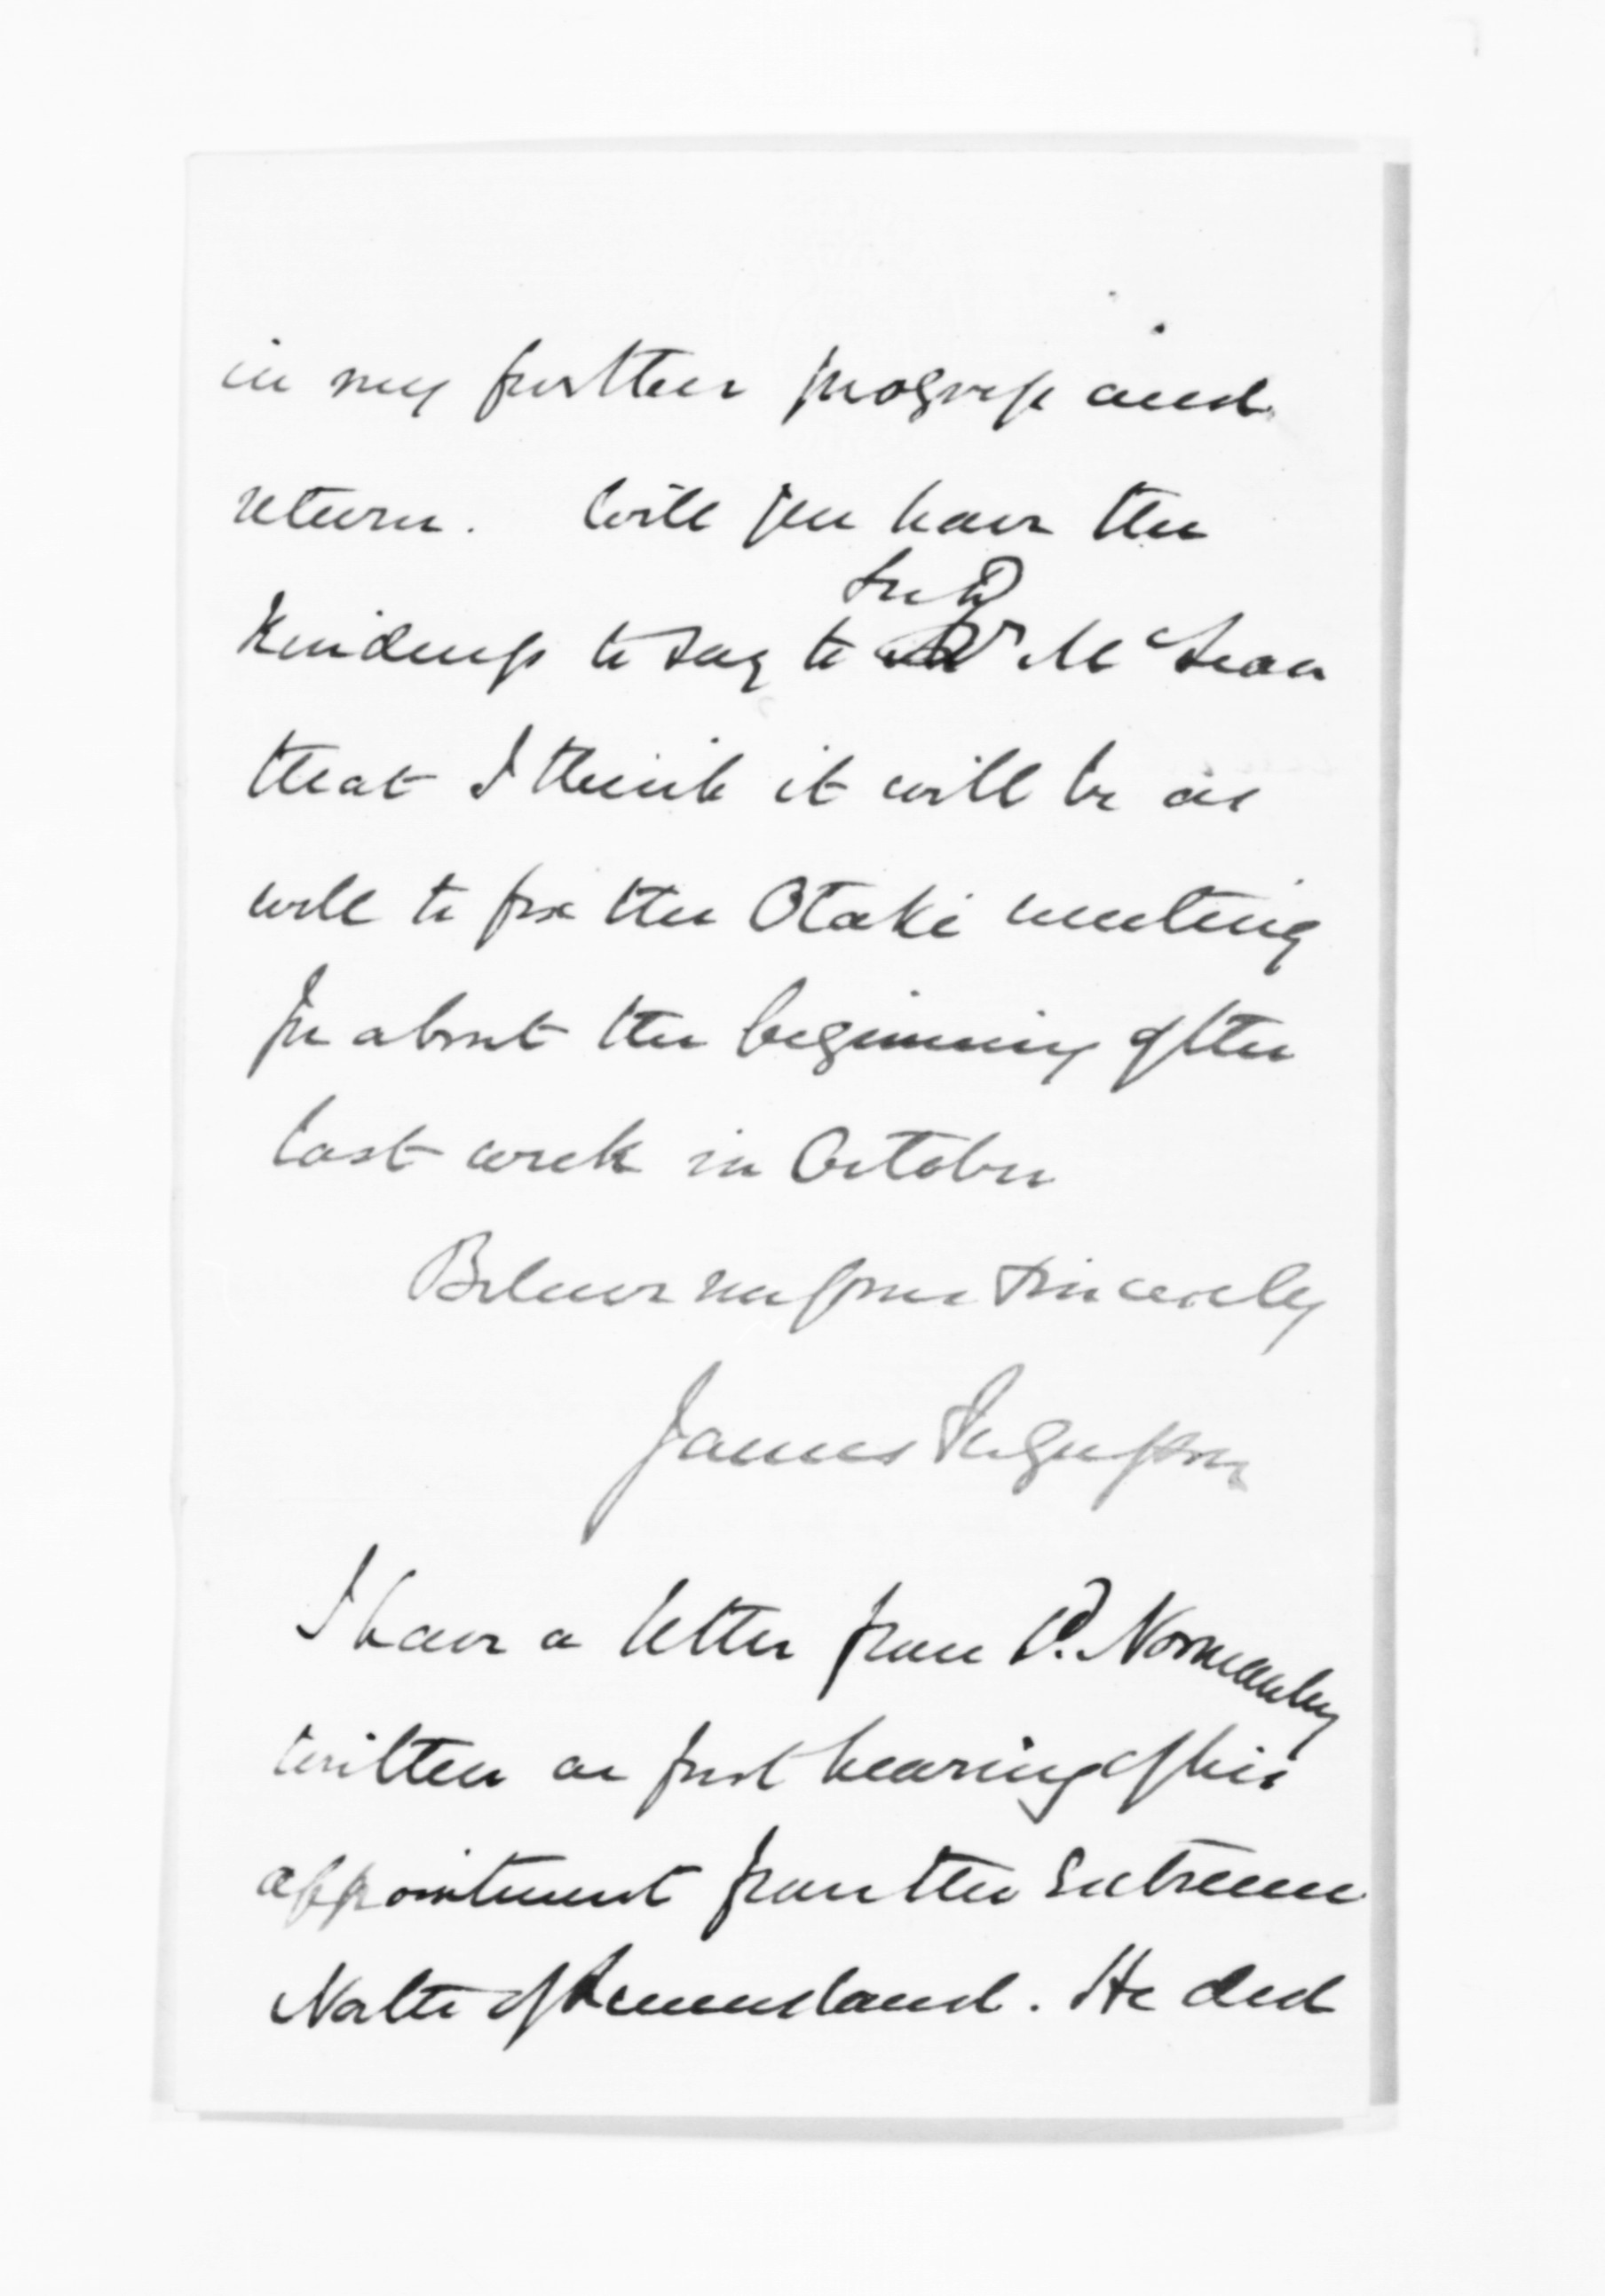 in my further progress and
return. Will you have the
Sir D
kindness to say to Mr McLean
that I think it will be as
well to fix the Otaki meeting
for about the beginning of the
last week in October
Believe me yours sincerely
James Fergusson
I have a letter from Ld. Normanby
written on first hearing of his
appointment from the extreme
North of Queensland. He did